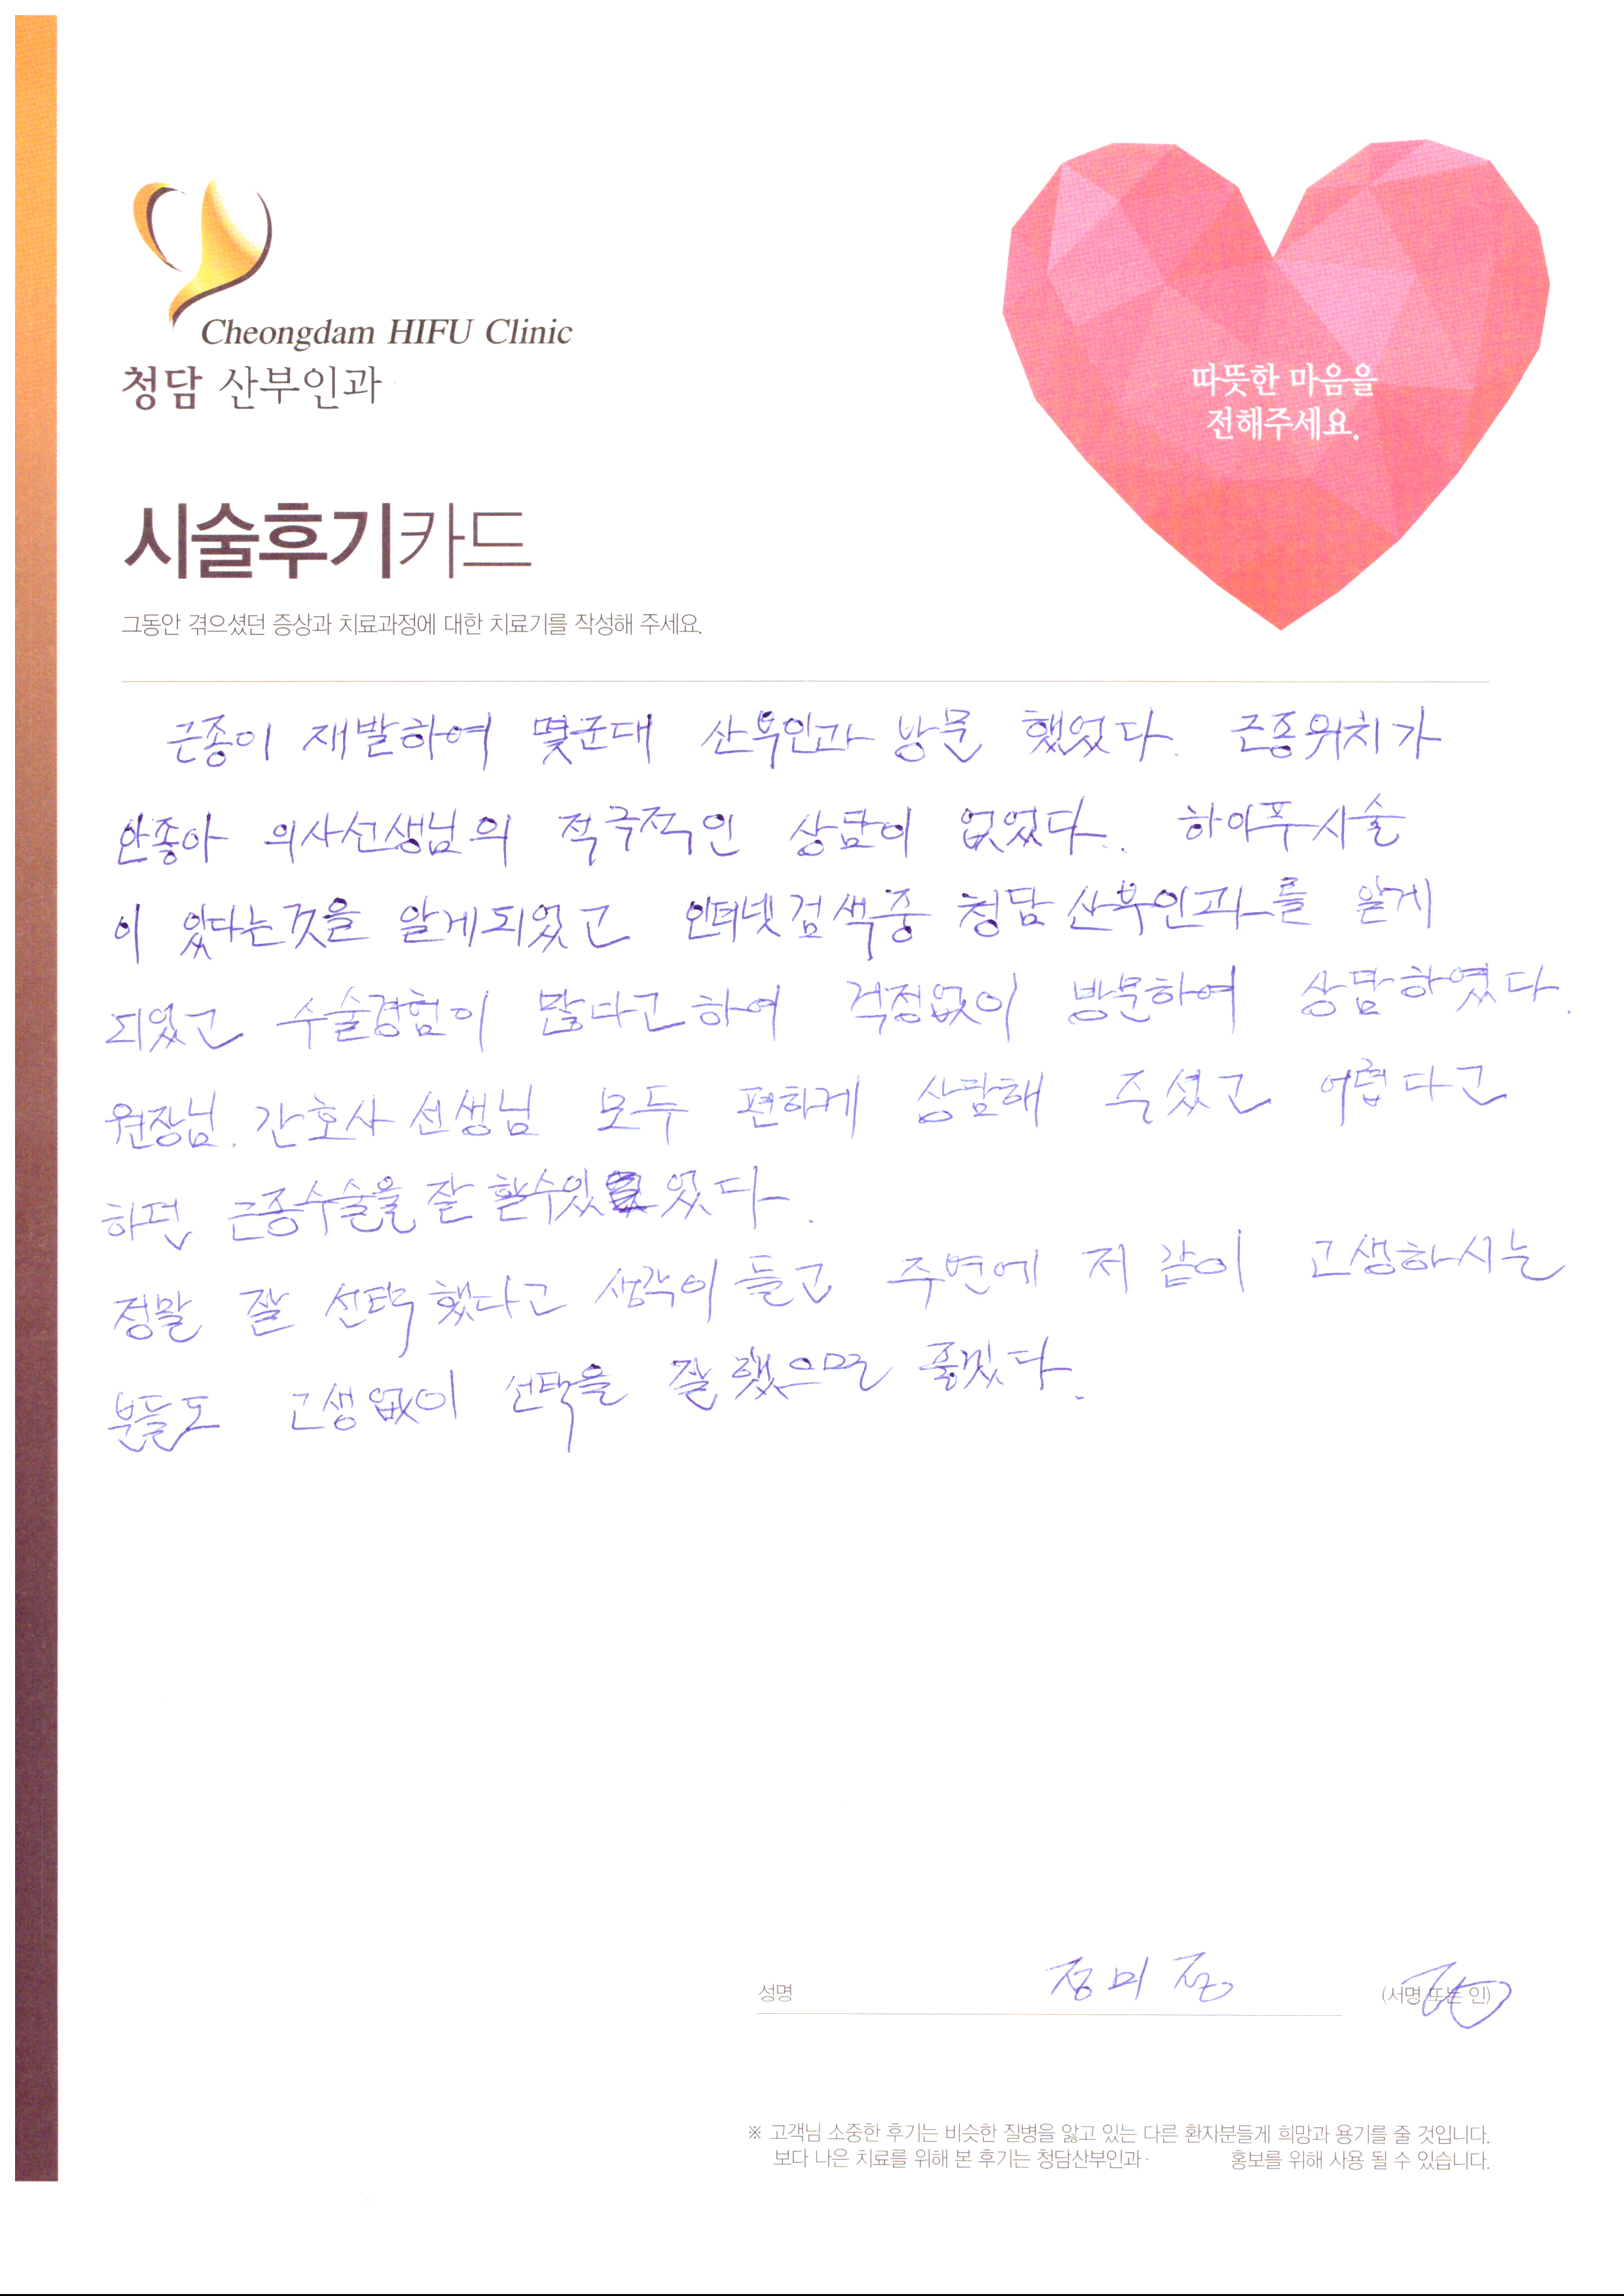 Cheongdam HIFU Clinic
청담 산부인과
따뜻한 마음을
전해주세요.
시술후기카드
그동안 겪으셨던 증상과 치료과정에 대한 치료기를 작성해 주세요.
근종이 재발하여 몇군대 산부인과 방문 했었다. 근종위치가
안좋아 의사선생님의 적극적인 상담이 없었다. 하이푸시술
이 있다는것을 알게되었고 인터넷검색중 청담산부인과를 알게
되었고 수술경험이 많다고하여 걱정없이 방문하여 상담하였다.
원장님. 간호사 선생님 모두 편하게 상담해 주셨고 어렵다고
하던 근종수술을 잘 할수있 었다.
정말 잘 선택했다고 생각이 들고 주변에 저 같이 고생하시는
분들도 고생없이 선택을 잘했으면 좋겠다.
성명 정미
(서명 또는 인)
※ 고객님 소중한 후기는 비슷한 질병을 앓고 있는 다른 환자분들게 희망과 용기를 줄 것입니다.
보다 나은 치료를 위해 본 후기는 청담산부인과· 홍보를 위해 사용 될 수 있습니다.